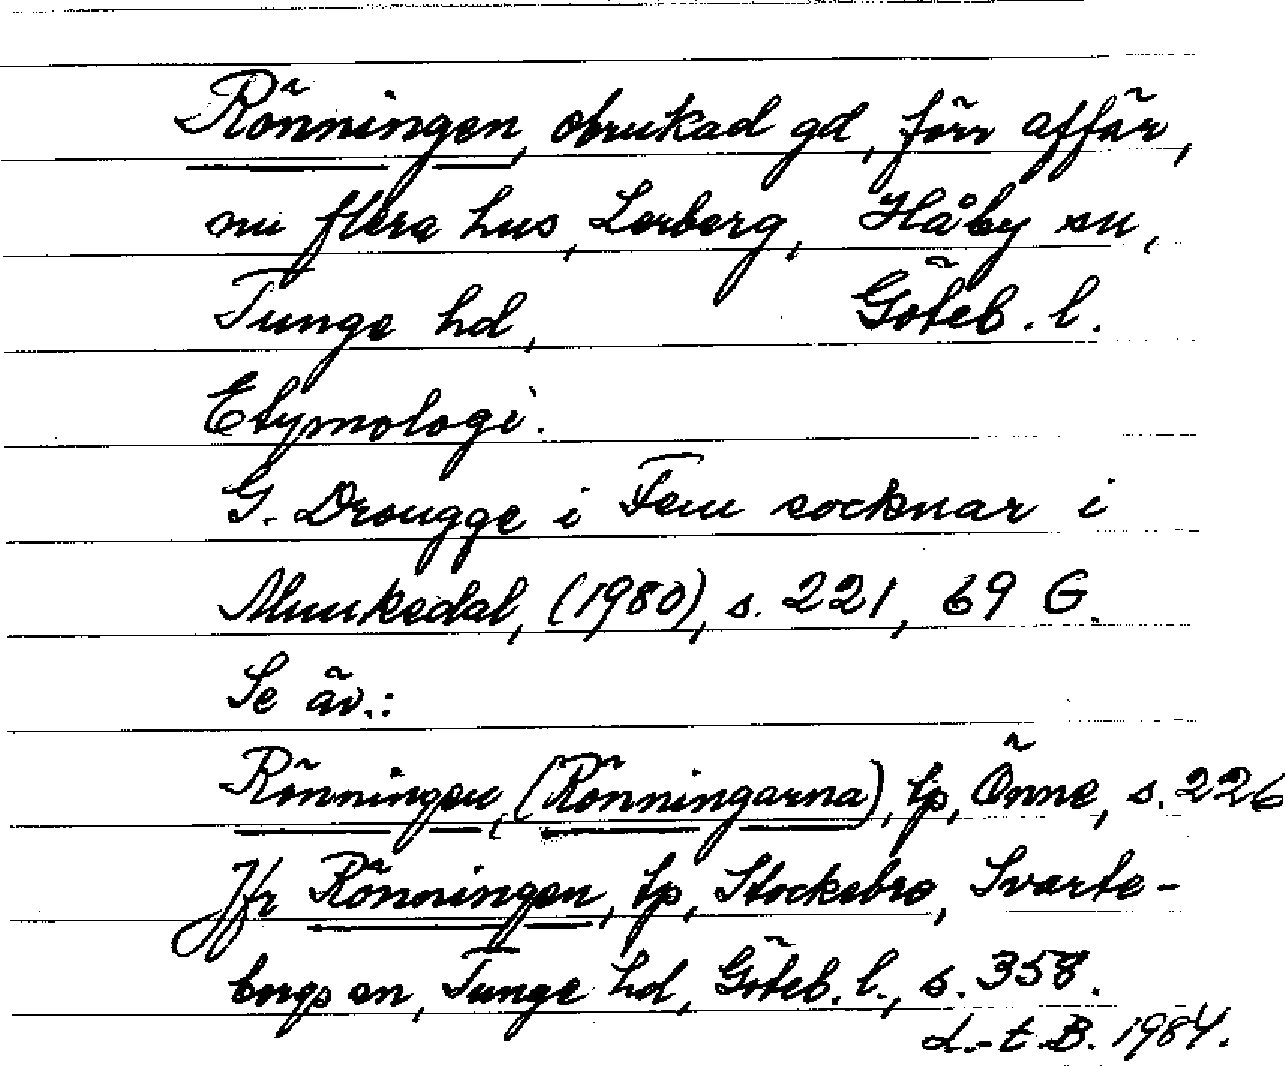 Rönningen, obrukad gd, förr affär,
nu flera hus, Lerberg, Håby sn,
Tunge hd, Göteb. l.
Etymologi.
G. Drougge i Fem socknar i
Munkedal, (1980), s. 221, 69 G.
Se äv.:
Rönningen, (Rönningarna), tp, Önne, s. 226
Jfr Rönningen, tp, Stockebro, Svarte-
borgs sn, Tunge hd, Göteb. l., s. 358.
L.-t. B. 1984.